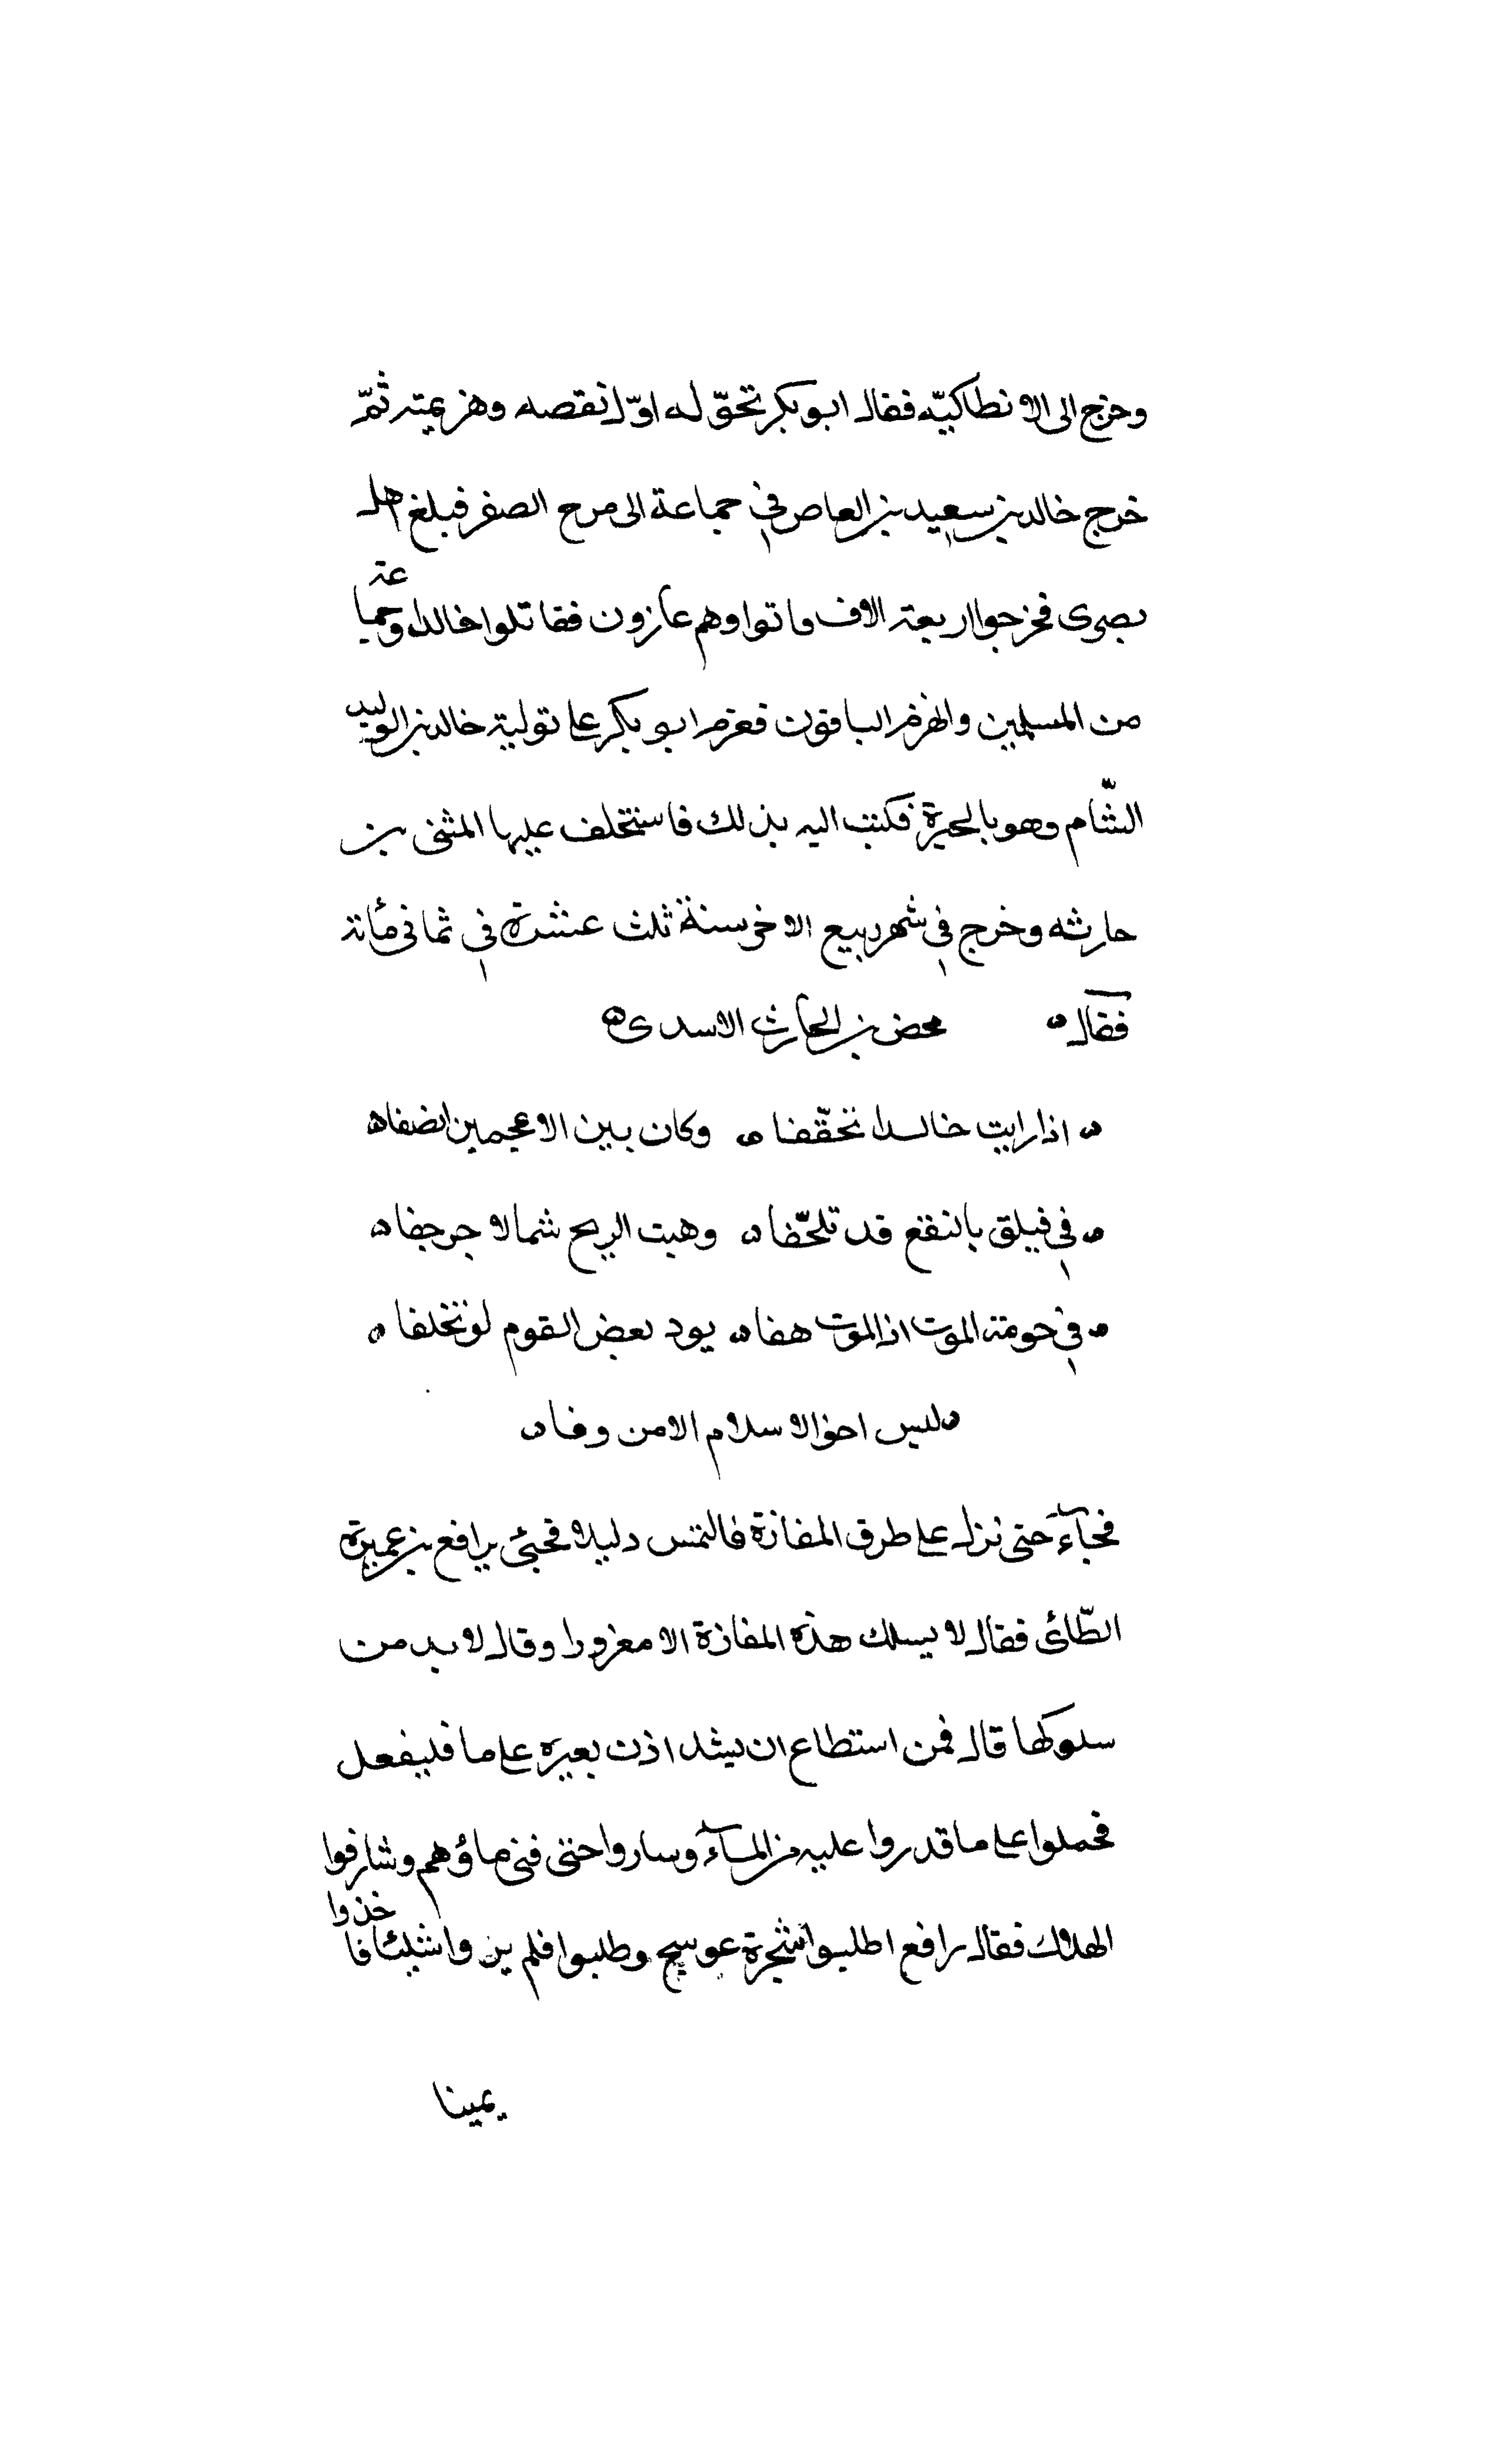 وخرج الى الانطاكيّه فقال ابو بكر تحوّله اوّل نقصه وهزيمته ثمّ
خرج خالد بن سعيد بن العاص في جماعة الى مرج الصفر فبلغ اهل
بصرى فخرجوا اربعة الاف فاتوا وهم غازون فقاتلوا خالدا وجماعة
من المسلمين وانهزم الباقون فعزم ابو بكر على تولية خالد بن الوليد
الشّام وهو بالحيرة فكتب اليه بذلك فاستخلف عليها المثنى بن
حارثه وخرج في شهر ربيع الاخر سنة ثلث عشرة في ثمانى مأئة
فقال محض بن الحارث الاسدى
اذا رايت خالدا تخفّفا وكان بين الاعجمين انضفا
في فيلق بالنقع قد تلحّفا وهبت الريح شمالا جرجفا
في حومة الموت اذ الموت هفا يود بعض القوم لو تخلفا
ليس اخو الاسلام الا من وفا
فجآءَ حتى نزل على طرق المفازة فالتمس دليلا فجئ برافع بن عميرة
الطّائى فقال لا يسلك هذه المفازة الا مغرورا وقال لا بد من
سلوكها قال فمن استطاع ان يشد اذن بعيره على ما فليفعل
فحملوا على ما قدروا عليه من المآء وساروا حتى فنى ماؤهم وشارفوا
الهلاك فقال رافع اطلبوا شجرة عوسج وطلبوا فلم يروا شيئا فاخذوا
يمينا